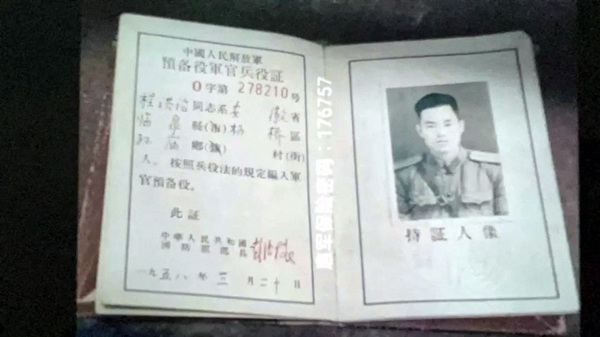 中國人民解放軍
預备役軍官兵役証
O字第 278210号
程 同志系安徽省
临泉縣(市)杨橋區
鄉(鎮) 村(街)
人。按照兵役法的規定編入軍
官預备役。
此証
中華人民共和國
國防部部長 彭德怀
一九五八年三月二十日
：176757
持証人像